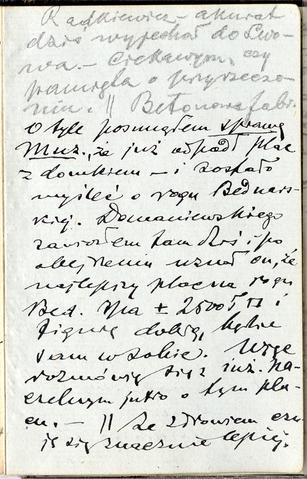 Radkiewicz – akurat
dziś wyjechał do Lwo-
wa. – Ciekawym, czy
pamięta o przyrzecze-
niu. || Betonowa fabr.
O tyle posunąłem sprawę
Muz., że już odpadł plac
z domkiem – i zostało
myśleć o rogu Bednar-
skiej. Domaniewskiego
zawiozłem tam dziś i po
obejrzeniu uznał on, że
najlepszy plac na rogu
Bed. Ma ± 2500 ł. □ i
figurę dobrą, będzie
sam w sobie. Więc
rozmówię się z inż. na-
czelnym jutro o tym pla-
cu. – || Ze zdrowiem czu-
ję się znacznie lepiej.